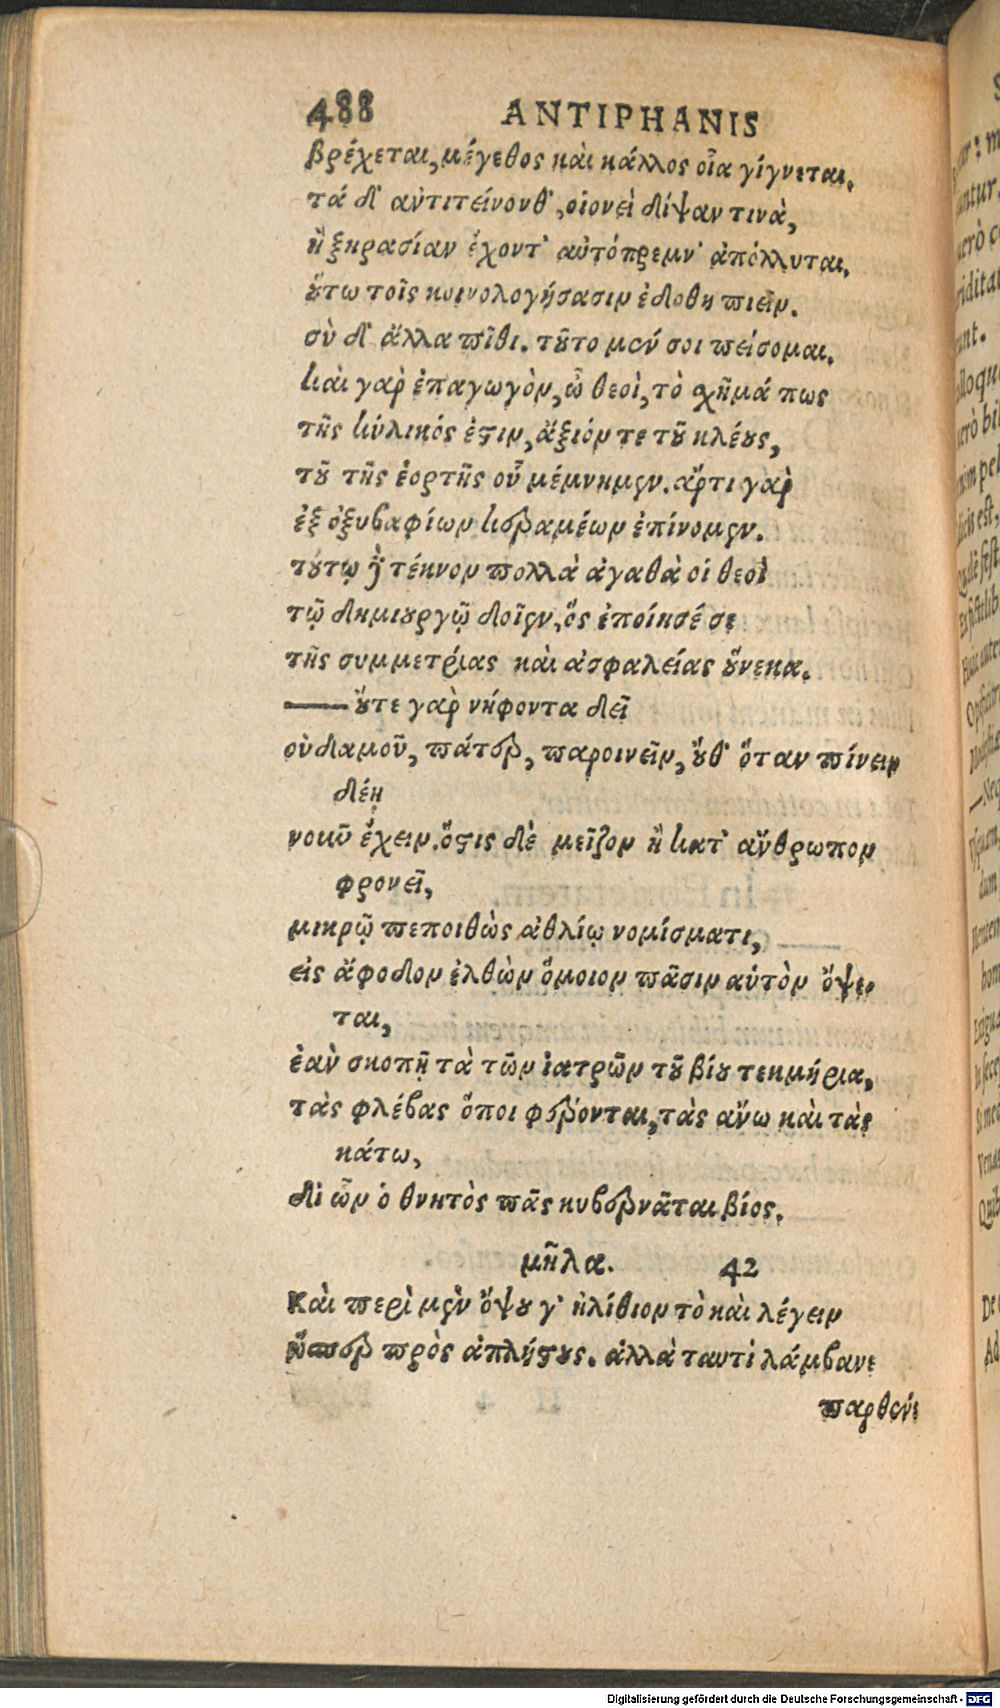 488 ANTIPHANIS
βρέχεται, μέγεθος καὶ κάλλος οἷα γίγνεται.
τά δ' αὐτιτείνονθ', οἱονεὶ δίψαν τινὰ,
ἢ ξηρασίαν ἔχοντ' αὐτόπρεμν' ἀπόλλυται.
ὅτω τοῖς κοινολογήσασιν ἐδοθη πιεῖν.
σὺ δ' ἄλλα πῖθι. τοῦτο μέν σοι πείσομαι.
καὶ γαρ ἐπαγωγὸν, ὦ θεοὶ, τὸ σχῆμά πως
τῆς κύλικός ἐστιν, ἄξιόν τε τοῦ κλέους,
τοῦ τῆς ἑορτῆς οὗ μέμνημεν. ἄρτι γὰρ
ἐξ ὀξυβαφίων κεραμέων ἐπίνομεν.
τούτῳ δὲ τέκνον πολλὰ ἀγαθὰ οἱ θεοὶ
τῷ δημιουργῷ δοῖεν, ὅς ἐποίησέ σε
τῆς συμμετρίας καὶ ἀσφαλείας οὕνεκα.
— οὔτε γαρ νήφοντα δεῖ
οὐδαμοῦ, πάτερ, παροινεῖν, οὔθ' ὅταν πίνειν
δέῃ
νοιῶ ἔχειν. ὅστις δὲ μεῖζον ἢ κατ' ἄνθρωπον
φρονεῖ,
μικρῷ πεποιθὼς ἀθλίῳ νομίσματι,
εἰς ἄφοδον ἐλθὼν ὅμοιον πᾶσιν αὑτὸν ὄψε-
ται,
ἐὰν σκοπῇ τὰ τῶν ἰατρῶν τοῦ βίου τεκμήρια,
τὰς φλέβας ὅποι φέρονται, τὰς ἄνω καὶ τὰς
κάτω,
δι ὧν ὁ θνητὸς πᾶς κυβερνᾶται βίος.
μῆλα. 42
Καὶ περὶ μὲν ὄψου γ' ἠλίθιον τὸ καὶ λέγειν
ὥσπερ πρὸς ἀπλήστους. ἀλλὰ ταυτὶ λάμβανε
παρθένε
Digitalisierung gefördert durch die Deutsche Forschungsgemeinschaft - DFG